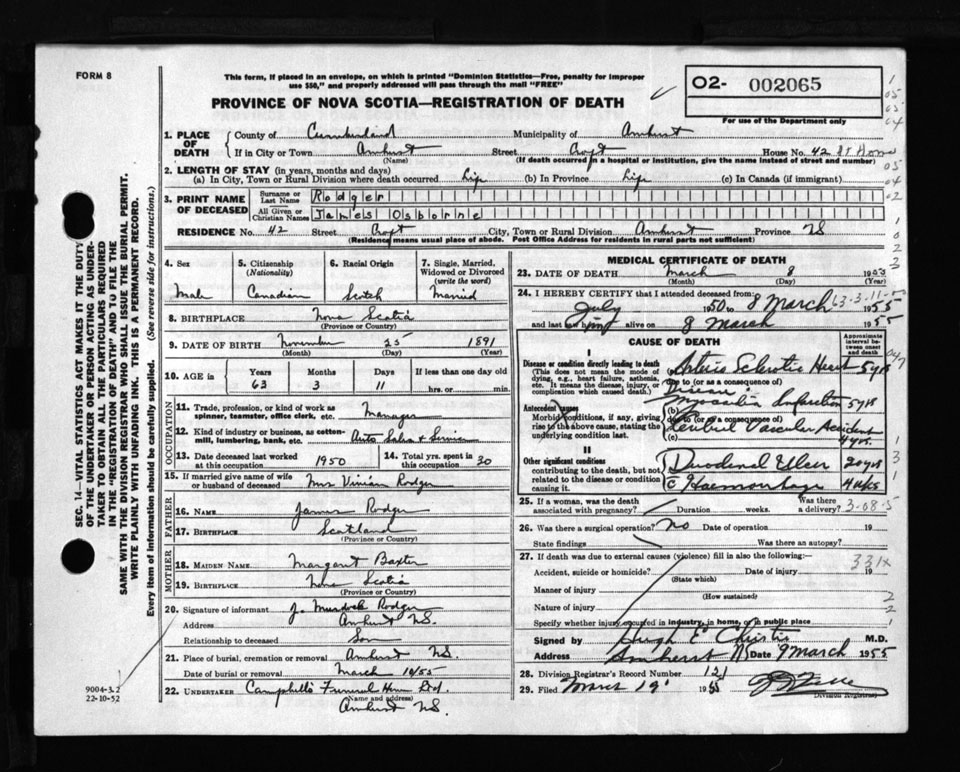 FORM 8
This form, if placed in an envelope, on which is printed "Dominion Statistics—Free, penalty for improper
use $50," and properly addressed will pass through the mail "FREE"
02- 002065
For use of the Department only
PROVINCE OF NOVA SCOTIA—REGISTRATION OF DEATH
1. PLACE OF DEATH County of Cumberland Municipality of Amherst
If in City or Town Amherst Street Croft House No. 42 at Home
(Name) (If death occurred in a hospital or institution, give the name instead of street and number)
2. LENGTH OF STAY (in years, months and days)
(a) In City, Town or Rural Division where death occurred Life (b) In Province Life (c) In Canada (if immigrant)
3. PRINT NAME OF DECEASED Surname or Last Name Rodger
All Given or Christian Names James Osborne
RESIDENCE No. 42 Street Croft City, Town or Rural Division Amherst Province NS
(Residence means usual place of abode. Post Office Address for residents in rural parts not sufficient)
4. Sex Male
5. Citizenship (Nationality) Canadian
6. Racial Origin Scotch
7. Single, Married, Widowed or Divorced (write the word) Married
8. BIRTHPLACE Nova Scotia
(Province or Country)
9. DATE OF BIRTH November 25 1891
(Month) (Day) (Year)
10. AGE in Years Months Days If less than one day
63 3 11 hrs. or min.
OCCUPATION
11. Trade, profession, or kind of work as spinner, teamster, office clerk, etc. Manager
12. Kind of industry or business, as cotton-mill, lumbering, bank, etc. Auto Sales & Service
13. Date deceased last worked at this occupation 1950
14. Total yrs. spent in this occupation 30
15. If married give name of wife or husband of deceased Mrs Vivian Rodger
FATHER
16. NAME James Rodger
17. BIRTHPLACE Scotland
(Province or Country)
MOTHER
18. MAIDEN NAME Margaret Baxter
19. BIRTHPLACE Nova Scotia
(Province or Country)
20. Signature of informant J. Murdock Rodger
Address Amherst N.S.
Relationship to deceased Son
21. Place of burial, cremation or removal Amherst N.S.
Date of burial or removal March 10/55
22. UNDERTAKER Campbell's Funeral Home Ltd.
(Name and Address)
Amherst N.S.
MEDICAL CERTIFICATE OF DEATH
23. DATE OF DEATH March 8 1955
(Month) (Day) (Year)
24. I HEREBY CERTIFY that I attended deceased from:
July 1950 to 8 March 1955
63-3-11
and last saw him alive on 8 March 1955
CAUSE OF DEATH
Approximate interval between onset and death
I
Disease or condition directly leading to death
(This does not mean the mode of dying, e.g., heart failure, asthenia, etc. It means the disease, injury, or complication which caused death.)
(a) Arterio Sclerotic Heart 5 yrs
due to (or as a consequence of)
Disease
Antecedent causes
Morbid conditions, if any, giving rise to the above cause, stating the underlying condition last.
(b) Myocardial Infarction 5 yrs
due to (or as a consequence of)
(c) Cerebral Vascular Accident
4 yrs.
II
Other significant conditions
contributing to the death, but not related to the disease or condition causing it.
Duodenal Ulcer 20 yrs
c Haemorrhage 4 wks
25. If a woman, was the death associated with pregnancy? Duration weeks. Was there a delivery?
3-08-5
26. Was there a surgical operation? No Date of operation 19
State findings Was there an autopsy?
27. If death was due to external causes (violence) fill in also the following:—
331x
Accident, suicide or homicide? Date of injury 19
(State which)
Manner of injury
(How sustained)
Nature of injury
Specify whether injury occurred in industry, in home, or in public place
Signed by Hugh E Christie M.D.
Address Amherst NS Date 9 March 1955
28. Division Registrar's Record Number 121
29. Filed March 19 1955
Division Registrar
SEC. 14—VITAL STATISTICS ACT MAKES IT THE DUTY
OF THE UNDERTAKER OR PERSON ACTING AS UNDER-
TAKER TO OBTAIN ALL THE PARTICULARS REQUIRED
IN THE "REGISTRATION OF DEATH" AND TO FILE THE
SAME WITH THE DIVISION REGISTRAR WHO SHALL ISSUE THE BURIAL PERMIT.
WRITE PLAINLY WITH UNFADING INK. THIS IS A PERMANENT RECORD.
Every item of information should be carefully supplied. (See reverse side for instructions.)
9004-3.2
22-10-52